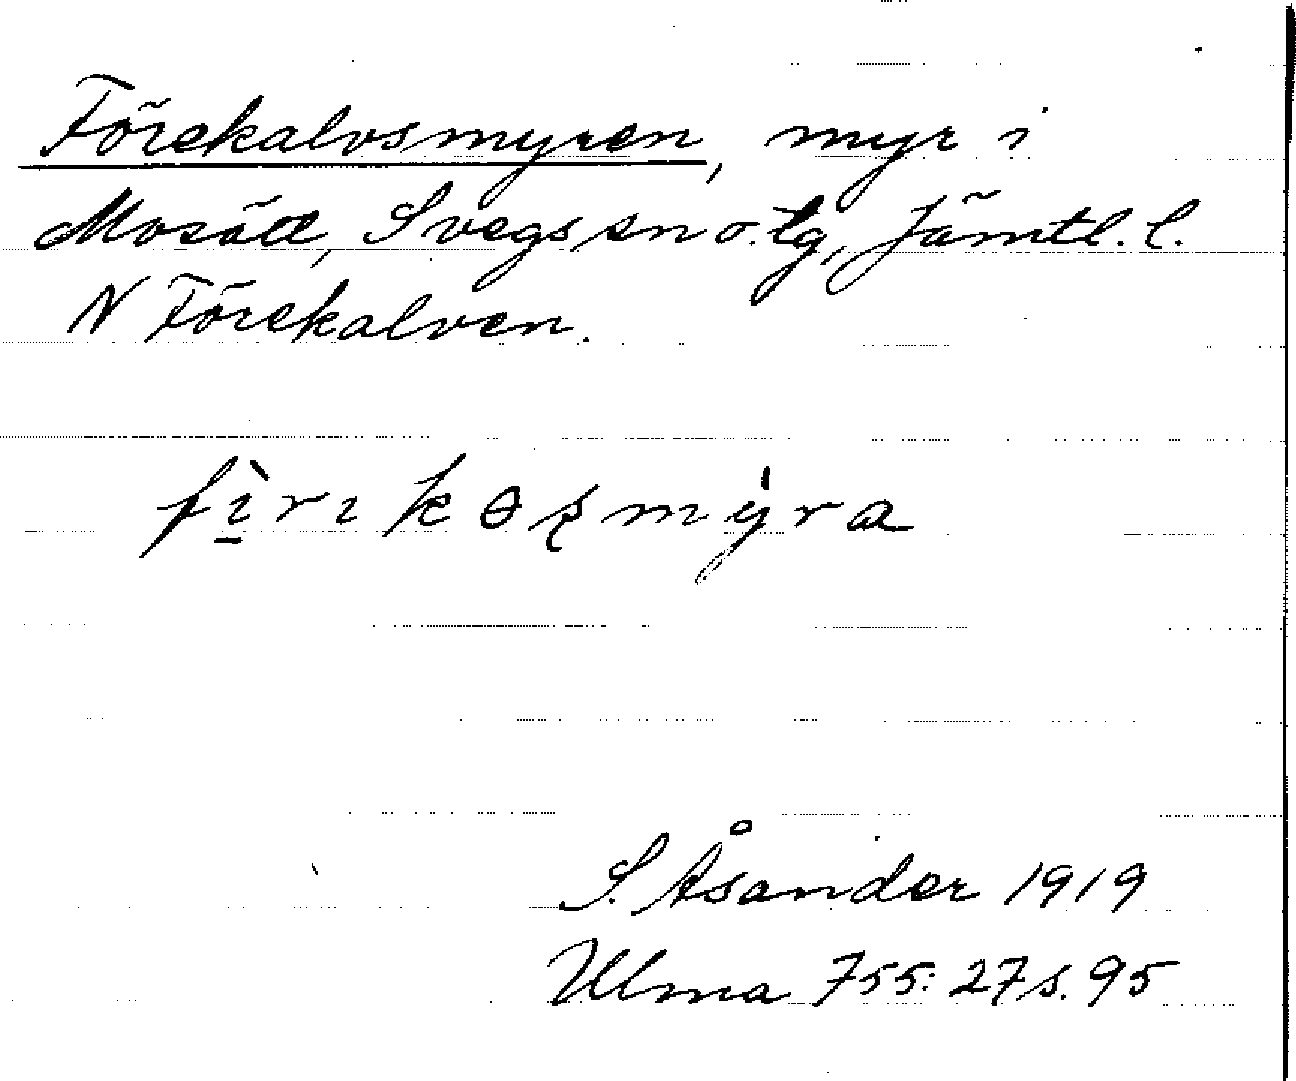 Förekalvsmyren, myr i
Mosätt, Svegs sn o. tg, Jämtl. l.
N Förekalven.
fìrıkəşmýra
S. Åsander 1919
Ulma 755:27 s. 95